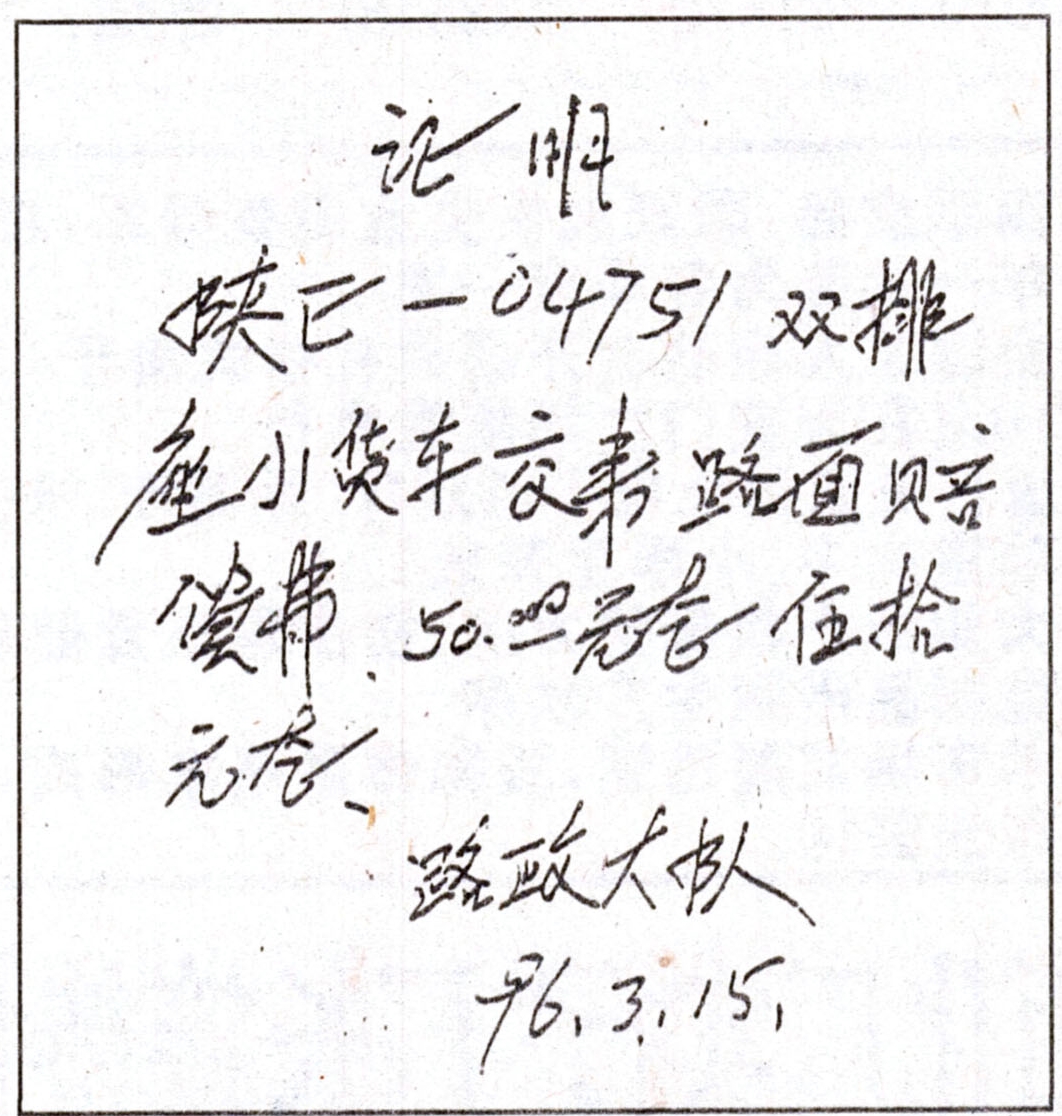 证明
陕E-04751 双排
座小货车交来路面赔
偿费.50.00元整 伍拾
元整、
路政大队
96.3.15.